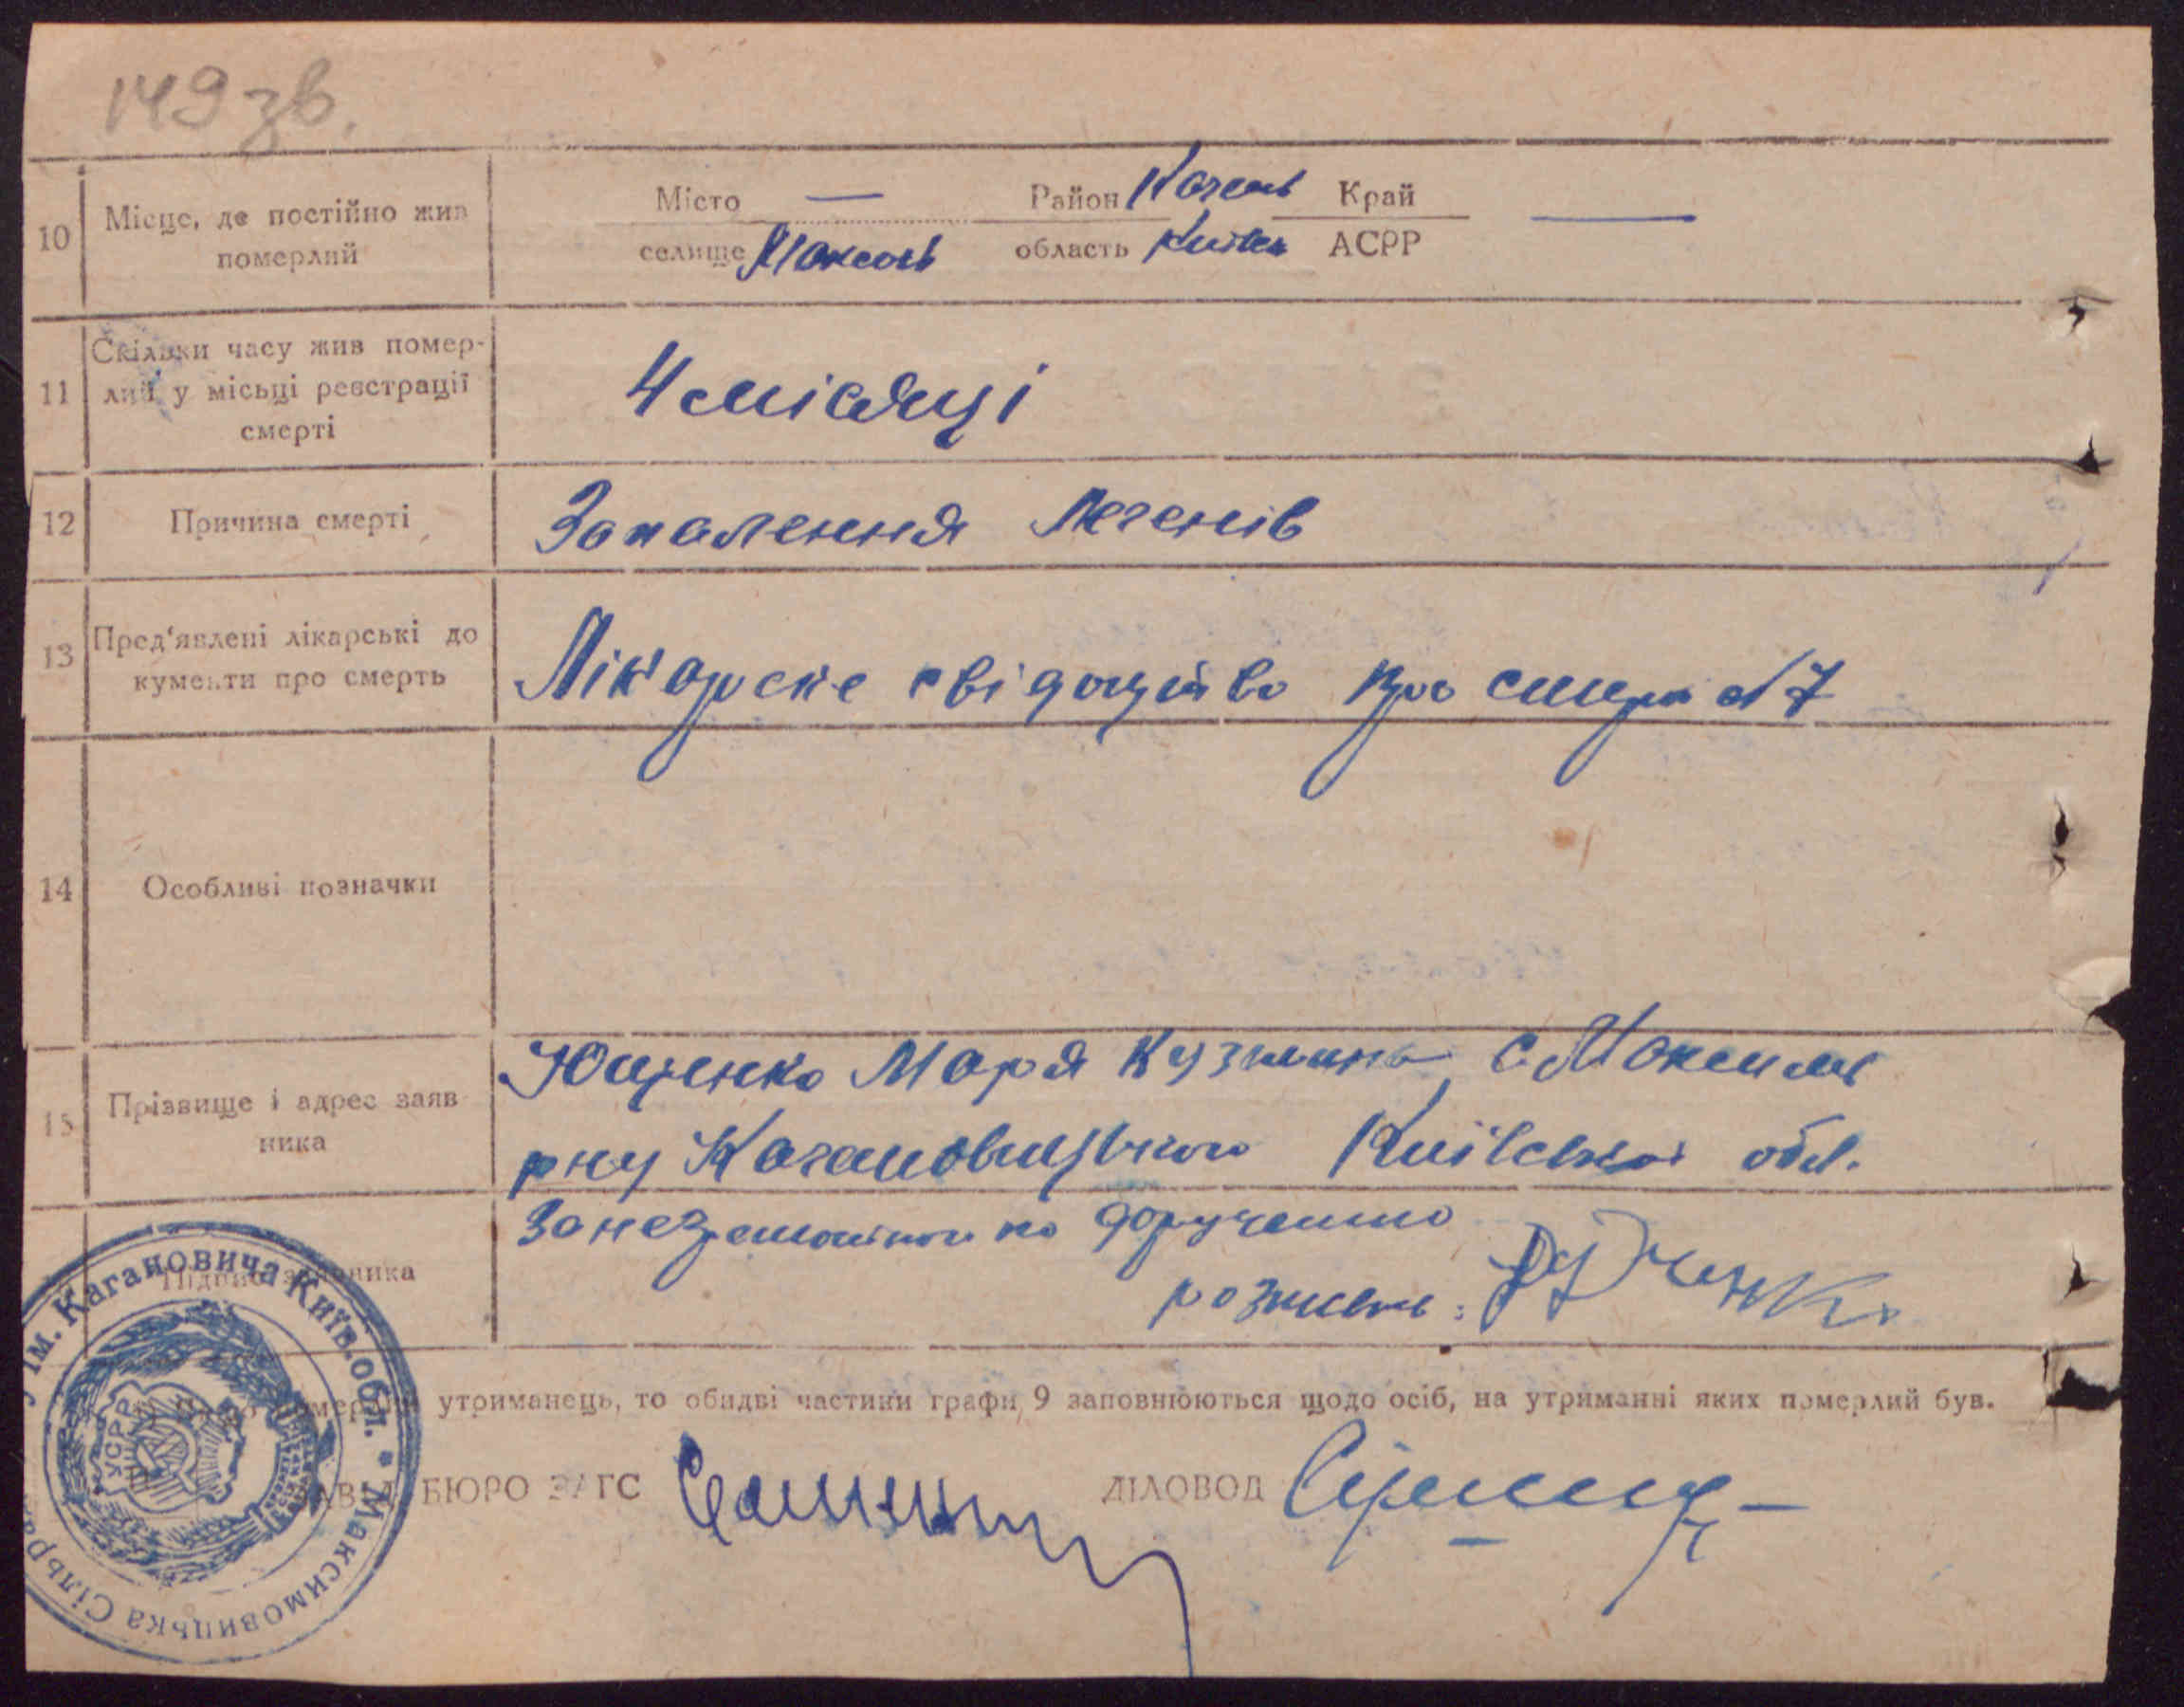 149 зв.
10 Місце, де постійно жив Місто — Район Каган Край —
померлий селище Максим область Київсь АСРР
Скільки часу жив помер-
11 лий у місьці реєстрації 4 місяці
смерті
12 Причина смерті Запалення Легенів
13 Пред'явлені лікарські до
кументи про смерть Лікарське свідоцтво про смерть №7
14 Особливі позначки
Ющенко Марія Кузминь с Максими
15 Прізвище і адрес заяв
ника р-ну Кагановицького Київської обл.
За незаможного по дорученню
Підпис заявника
розпись:
ім. Кагановича Київ. обл. * Максимовицька Сільра
УСРР
померлий утриманець, то обидві частини графи 9 заповнюються щодо осіб, на утриманні яких померлий був.
ЗАВ. БЮРО ЗАГС ДІЛОВОД